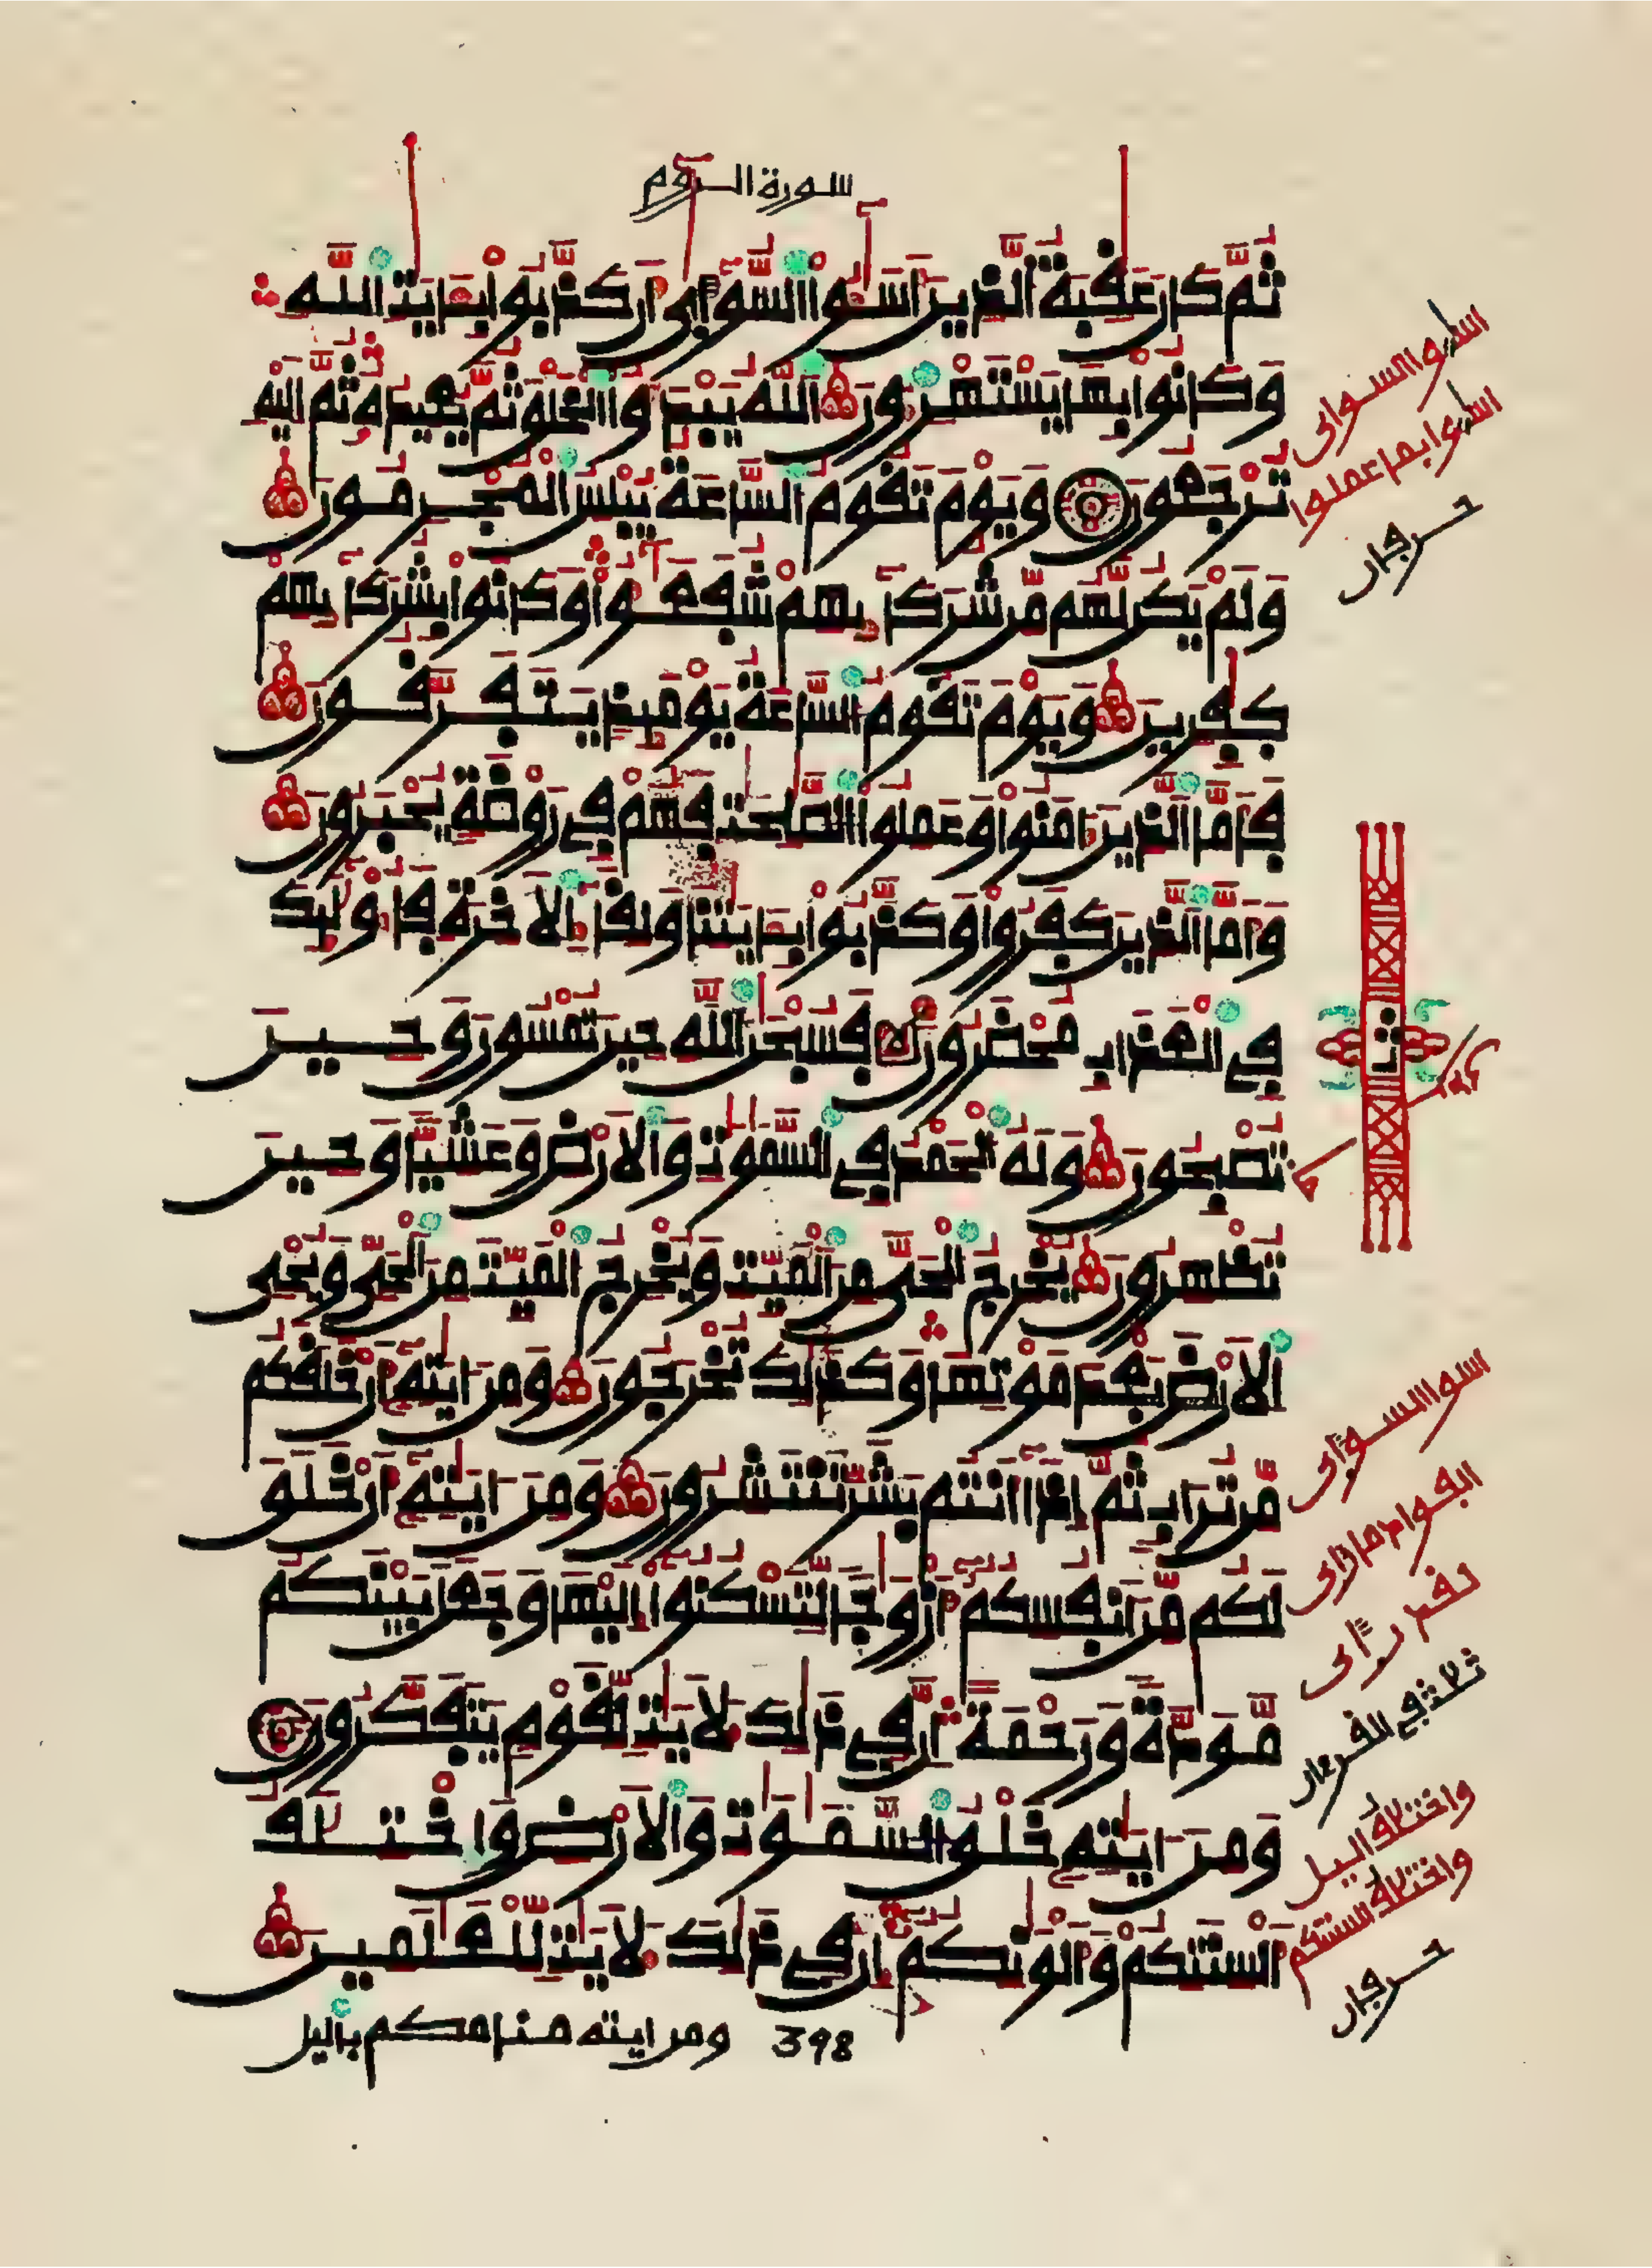 سورة الروم
ثم كان عقبة الذين أسـوا السوأى أن كذبوا بـايت الله
وكانوا بها يستهزءون الله يبدؤا الخلق ثم يعيده ثم إليه
ترجعون ويوم تقوم الساعة يبلس المجرمون
ولم يكن لهم من شركايهم شفعـوا وكانوا بشركايهم
كفرين ويوم تقوم الساعة يوميذ يتفرقون
فأما الذين ءامنوا وعملوا الصلحت فهم في روضة يحبرون
وأما الذين كفروا وكذبوا بـايتنا ولقاء الاخرة فأوليك
في العذاب محضرون فسبحن الله حين تمسون وحين
تصبحون وله الحمد في السموت والارض وعشيا وحين
تظهرون يخرج الحي من الميت ويخرج الميت من الحي ويحي
الارض بعد موتها وكذلك تخرجون ومن ايته أن خلقكم
من تراب ثم إذا أنتم بشر تنتشرون ومن ايته أن خلق
لكم من أنفسكم أزوجا لتسكنوا إليها وجعل بينكم
مودة ورحمة إن في ذلك لايت لقوم يتفكرون
ومن ايته خلق السموت والارض واختلف
ألسنتكم وألونكم إن في ذلك لايت للعلمين
398
ومن ايته منامكم باليل
اسـوا السوأى
اسـوا بما عملوا
حرفان
ثمن
اسوا السوأى
الفؤاد ما رأى
لقد رأى
ثلاث في القرءان
واختلاف اليل
واختلاف ألسنتكم
حرفان